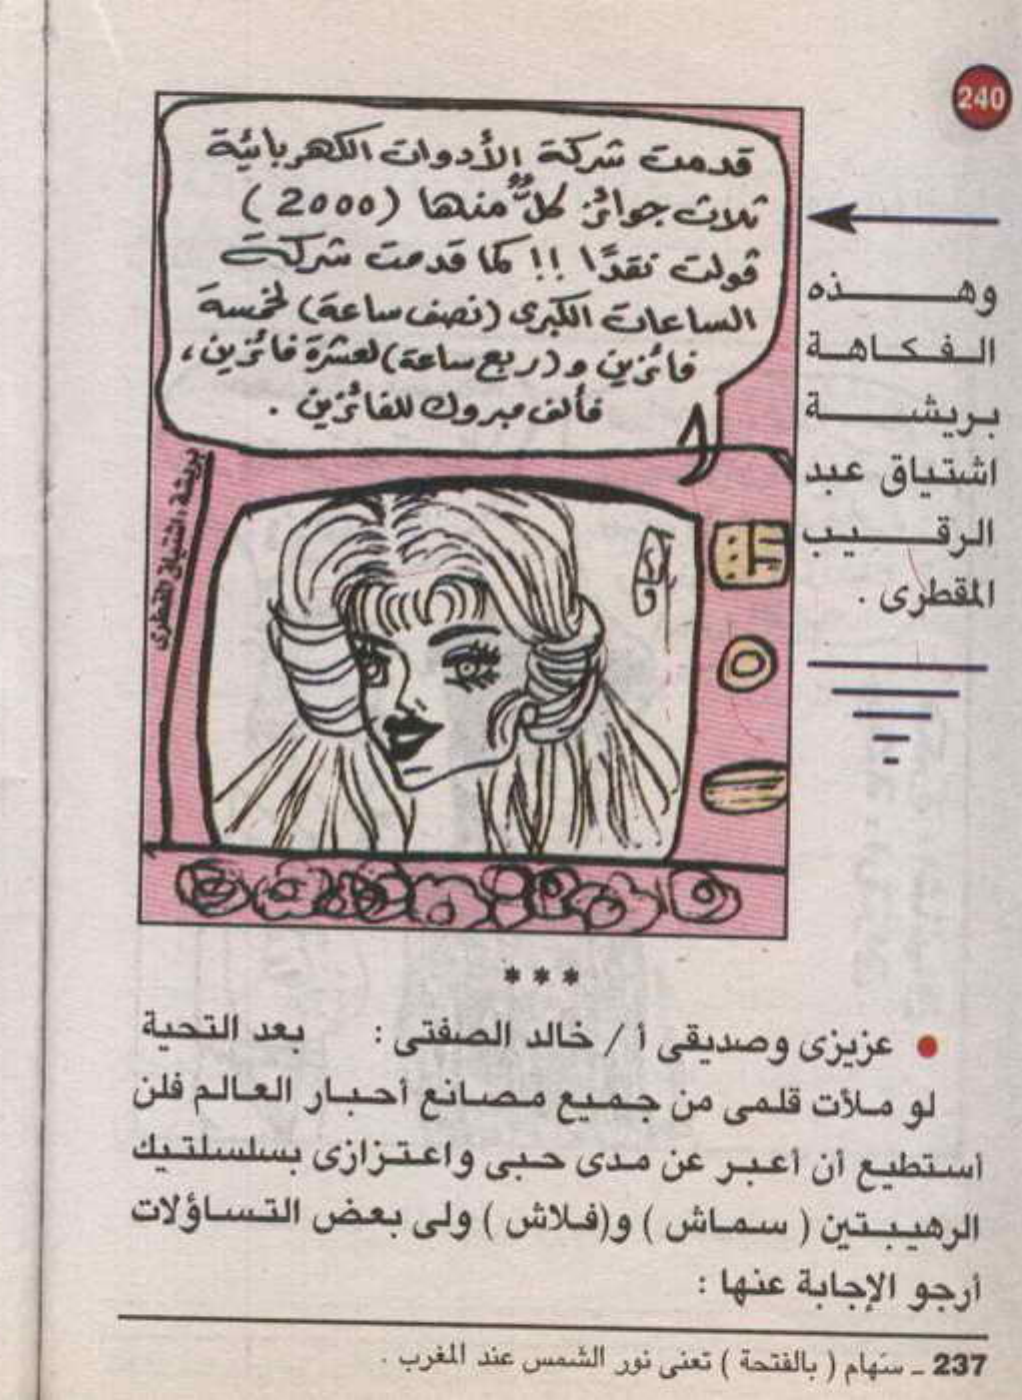 240
قدمت شركة الأدوات الكهربائية
ثلاث جوائز كلٌّ منها (2000)
ڤولت نقدًا !! كما قدمت شركة
الساعات الكبرى (نصف ساعة) لخمسة
فائزين و(ربع ساعة) لعشرة فائزين،
فألف مبروك للفائزين .
بريشة اشتياق المقطرى
وهـــــــذه
الـفـكـاهـة
بـريـشـــــة
اشتياق عبد
الرقـــيـــب
المقطرى .
***
● عزيزى وصديقى أ / خالد الصفتى : بعد التحية
لو مـلأت قلمى من جـميع مصـانع أحـبار العـالـم فلن
أستطيع أن أعبـر عن مدى حـبى واعتـزازى بسلسلتـيك
الرهيـبـتين ( سـماش ) و(فـلاش ) ولى بعض التـساؤلات
أرجو الإجابة عنها :
237 ـ سَهام ( بالفتحة ) تعنى نور الشمس عند المغرب .